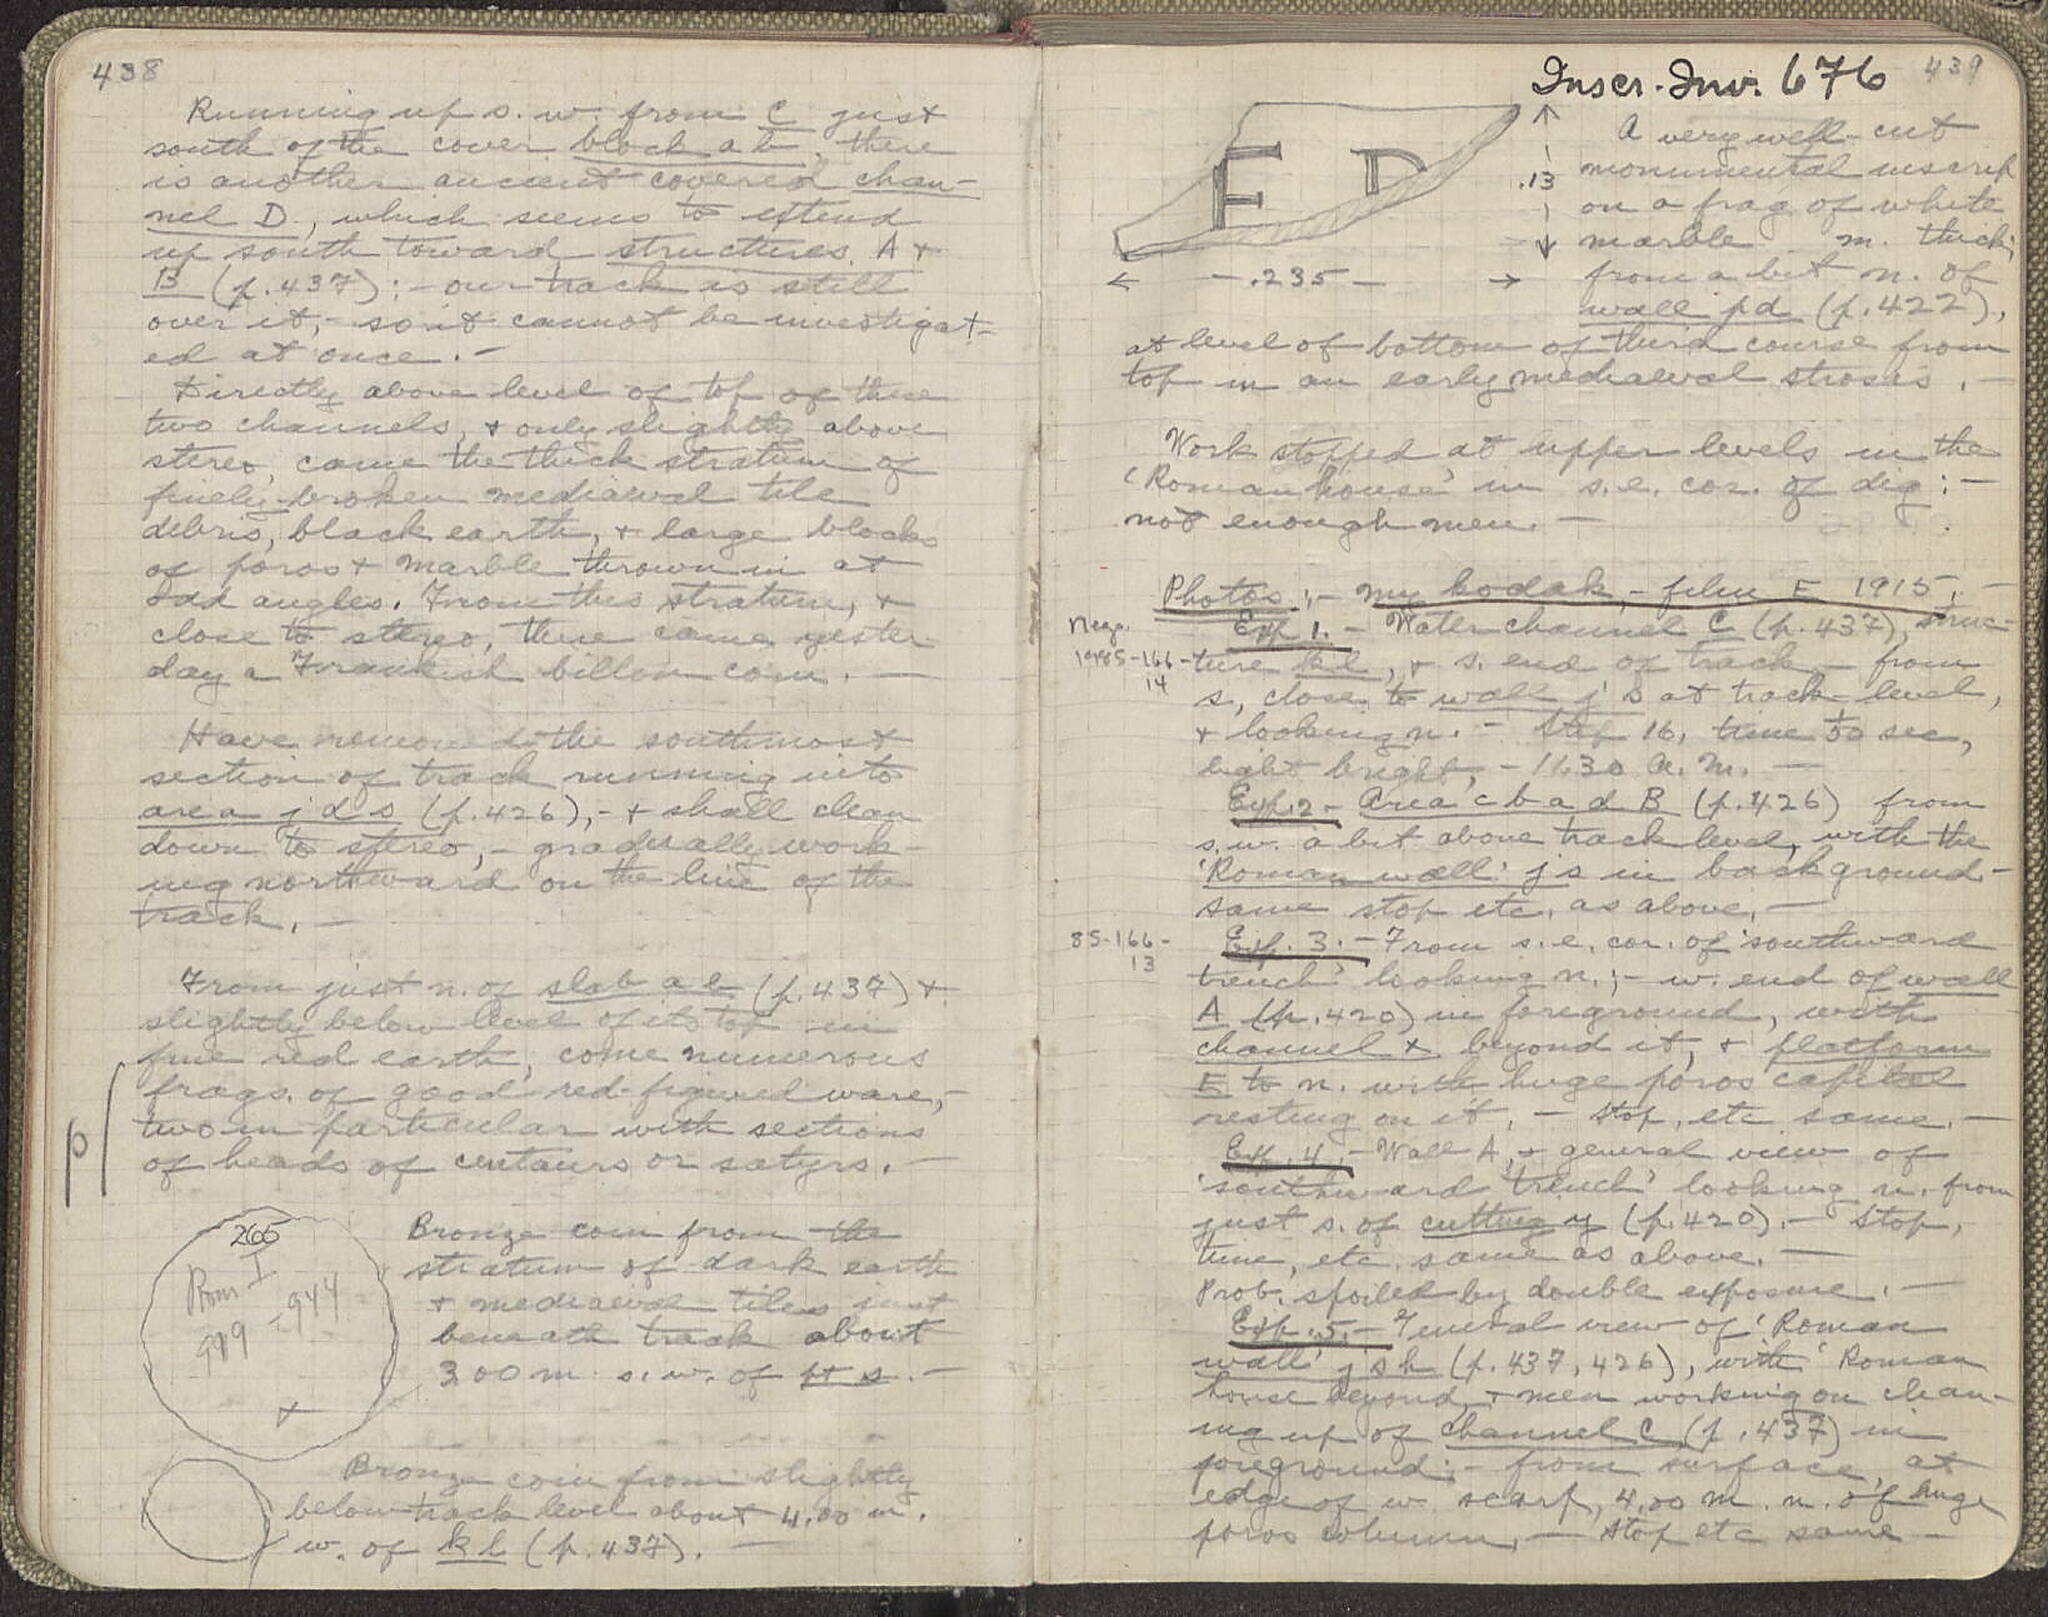 438
Running up s. w. from C just
south of the cover block a b, there
is another ancient covered chan-
nel D, which seems to extend
up south toward structures A +
B (p. 437) : - our track is still
over it, - so it cannot be investigat-
ed at once. -
Directly above level of top of these
two channels, + only slightly above
stereo, came the thick stratum of
finely-broken mediaeval tile
debris, black earth, + large blocks
of poros + marble thrown in at
odd angles. From this stratum, +
close to stereo, there came yester-
day a Frankish billon coin. -
Have removed the southmost
section of track running into
area j d s (p. 426), - + shall clean
down to stereo, - gradually work-
ing northward on the line of the
track. -
From just n. of slab a b (p. 437) +
slightly below level of its top in
fine red earth, come numerous
frags. of good red-figured ware, -
two in particular with sections
of heads of centaurs or satyrs. -
p
265
Rom I
919 - 944
Bronze coin from the
stratum of dark earth
+ mediaeval tiles just
beneath track about
3.00 m. s. w. of pt s. -
Bronze coin from slightly
below track level about 4.00 m.
w. of k l (p. 437). -
439
Inscr. Inv. 676
E D
.13
.235
A very well-cut
monumental inscrip
on a frag of white
marble m. thick;
from a bit n. of
wall p d (p. 422),
at level of bottom of third course from
top in an early mediaeval strosis. -
Work stopped at upper levels in the
'Roman house' in s. e. cor. of dig : -
not enough men. -
Photos : - my kodak, - film E 1915. -
Exp 1. - Water channel C (p. 437), struc-
Nega.
1985-166-
14
ture k l, + s. end of track - from
s, close to wall j s at track-level,
+ looking n. - Stop 16, time 1/50 sec,
light bright, - 11.30 A. M. -
Exp. 2 - Area c b a d B (p. 426) from
s. w. a bit above track level, with the
'Roman wall' j s in background -
same stop etc. as above. -
85-166-
13
Exp. 3. - From s. e. cor. of 'southward
trench' looking n. ; - w. end of wall
A (p. 420) in foreground, with
channel x beyond it, + platform
E to n. with huge poros capital
resting on it, - stop, etc same. -
Exp. 4. - Wall A, + general view of
'southward trench' looking n. from
just s. of cutting y (p. 420). - Stop,
time, etc. same as above. -
Prob. spoiled by double exposure. -
Exp. 5. - General view of 'Roman
wall' j s h (p. 437, 426), with 'Roman
house beyond, + men working on clean-
ing up of channel C (p. 437) in
foreground : - from surface, at
edge of w. scarp, 4.00 m. n. of huge
poros column, - stop etc same -